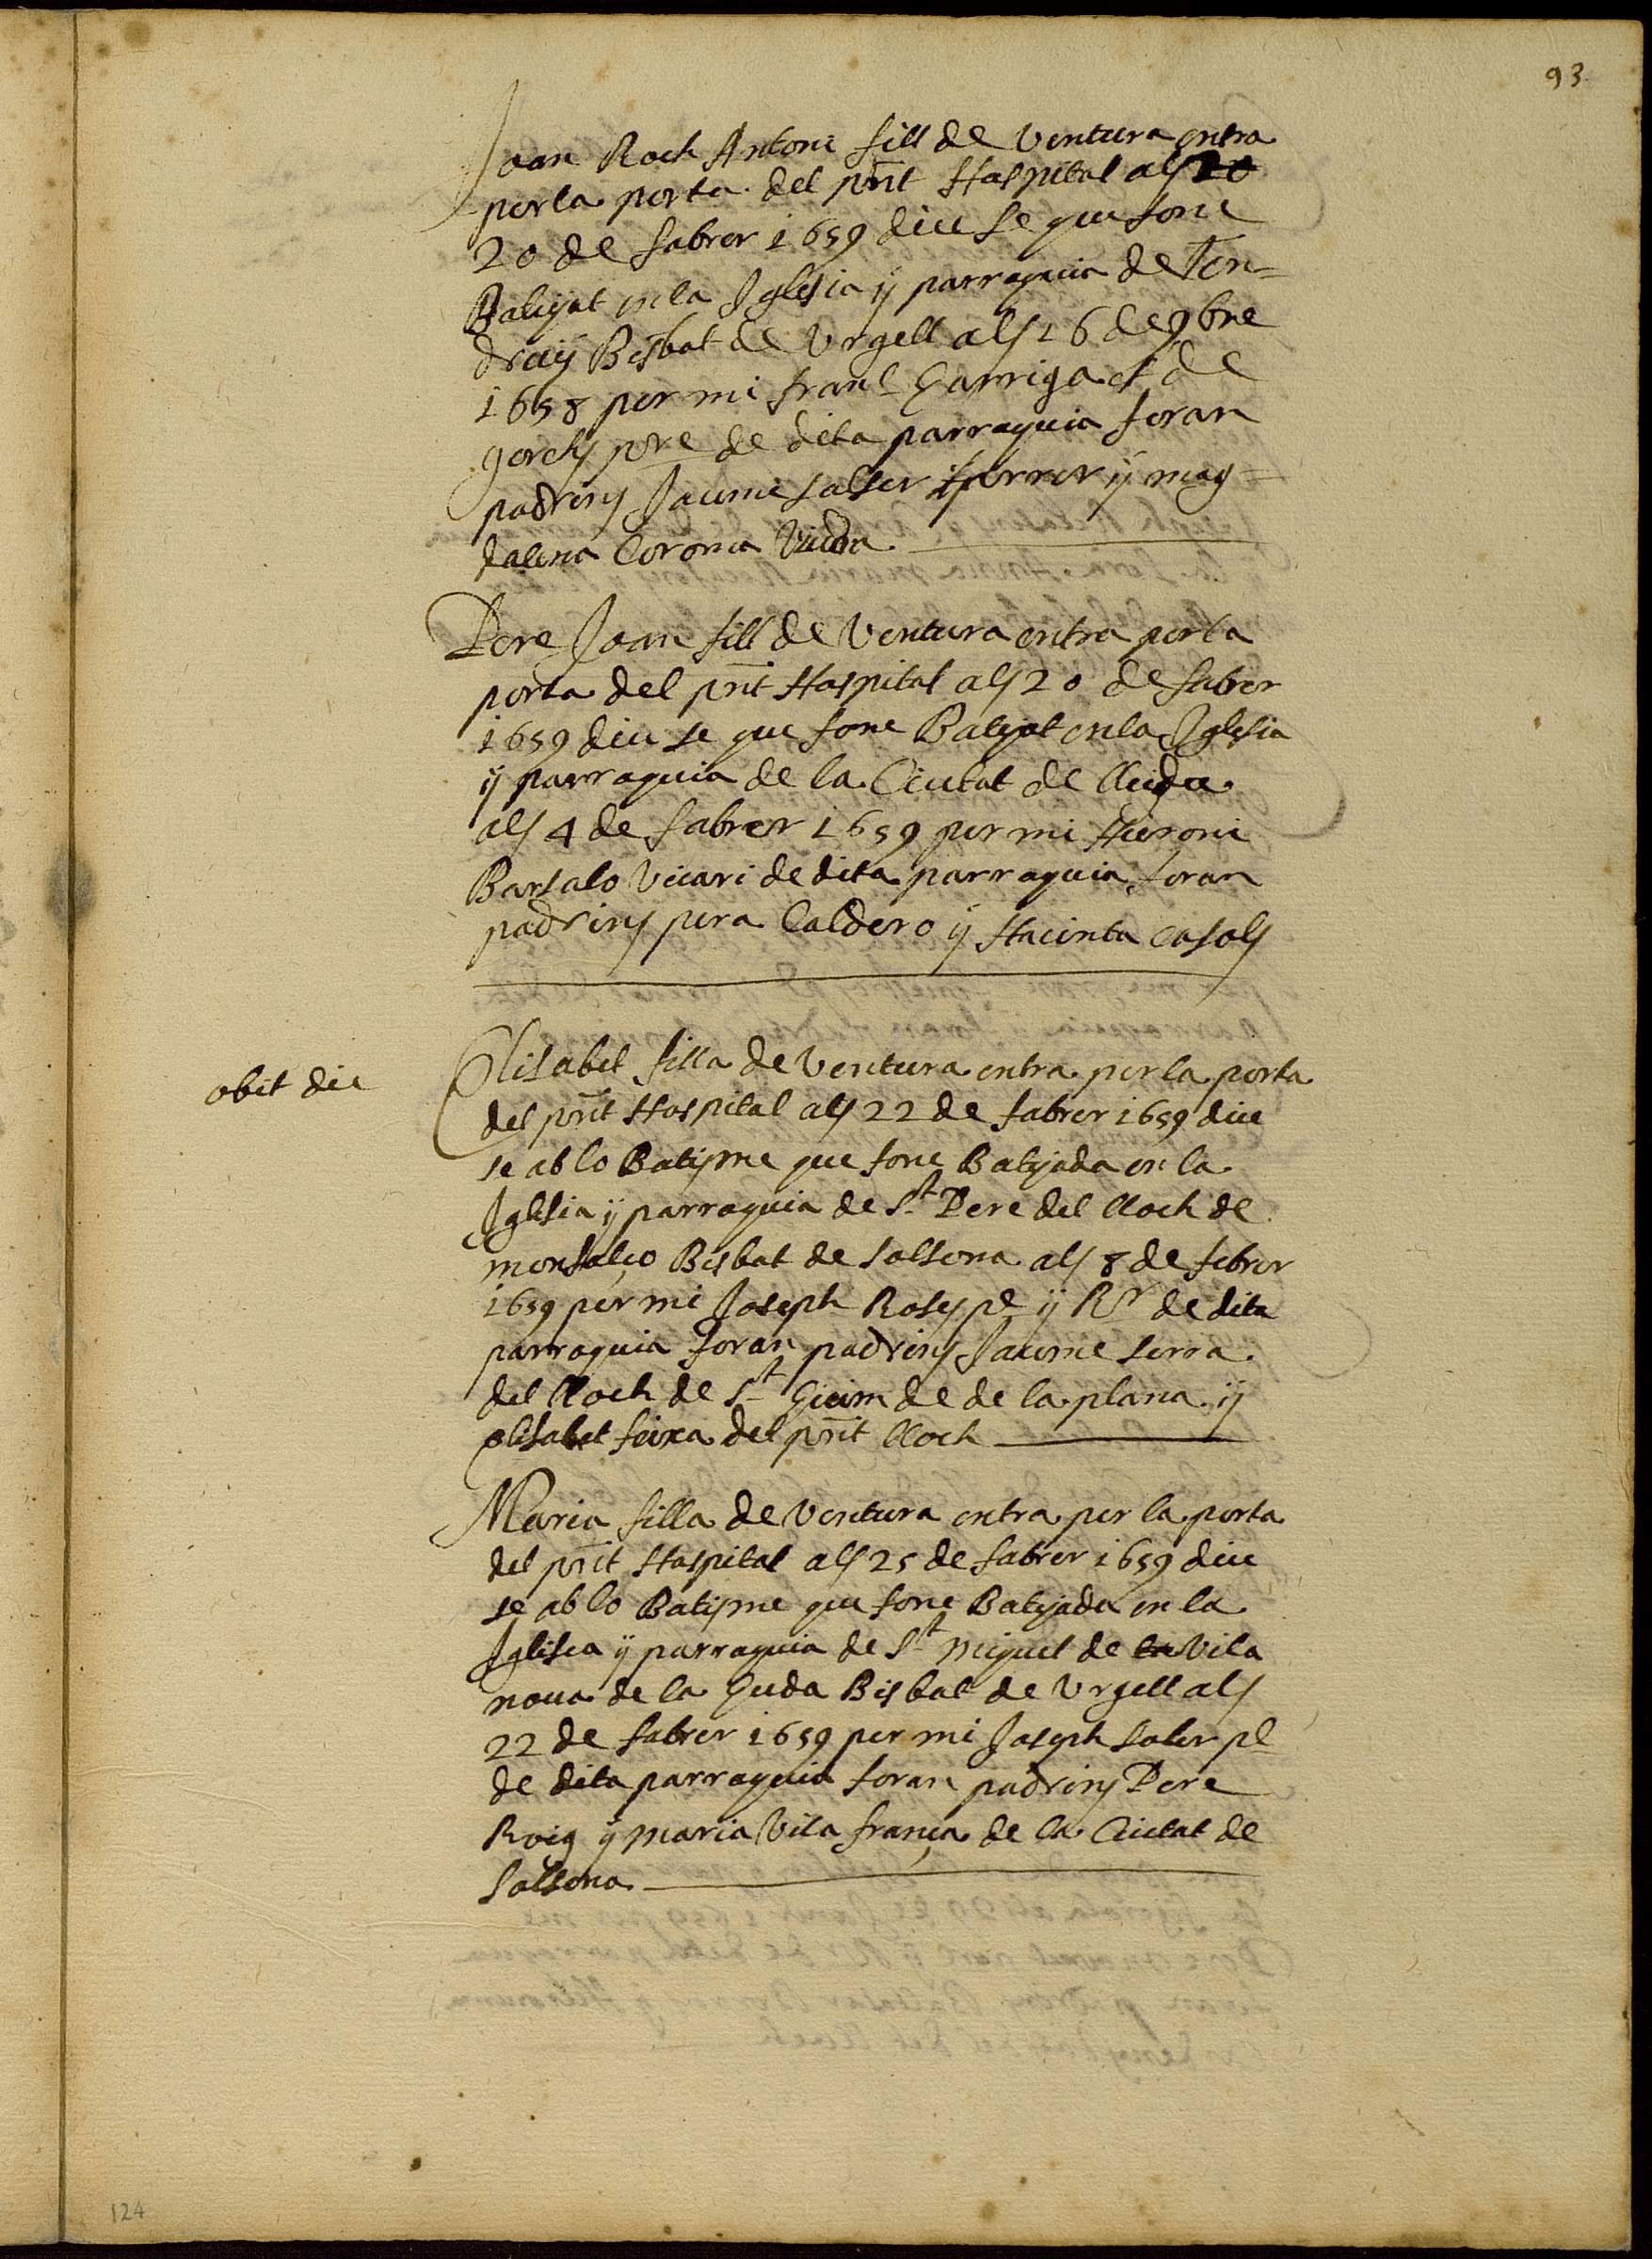 93
Joan Roch Antoni fill de Ventura entra
per la porta del pñt Hospital als 20
20 de fabrer 1659 diu se que fonc
Batejat en la Iglesia ÿ parroquia de Ten=
druÿ Bisbat de Vrgell als 16 de 9bre
1658 per mi franc Garriga et de
gorchs pre de dita parroquia foran
padrins Jaume Solser ferrer ÿ mag=
dalena Corona Viuda
Pere Joan fill de Ventura entra per la
porta del pñt Hospital als 20 de fabrer
1659 diu se que fonc Batejat en la Iglesia
ÿ parroquia de la Ciutat de lleida
als 4 de fabrer 1659 per mi Hieroni
Barsalo Vicari de dita parroquia foran
padrins pera Caldero ÿ Hacinta Casals
obit die
Elisabet filla de Ventura entra per la porta
del pñt Hospital als 22 de fabrer 1659 diu
se ab lo Batisme que fonc Batejada en la
Iglesia ÿ parroquia de St Pere del lloch de
monfalco Bisbat de Solsona als 8 de febrer
1659 per mi Joseph Roses pe ÿ Rr de dita
parroquia foran padrins Jaume serra
del lloch de St Guim de de la plana ÿ
elisabet feixa del pñt lloch
Maria filla de Ventura entra per la porta
del pñt Hospital als 25 de fabrer 1659 diu
se ab lo Batisme que fonc Batejada en la
Iglesia ÿ parroquia de St Miquel de la Vila
noua de la Guda Bisbat de Vrgell als
22 de fabrer 1659 per mi Joseph Soler pe
de dita parroquia foran padrins Pere
Roig ÿ Maria Vila franca de la Ciutat de
Solsona
124